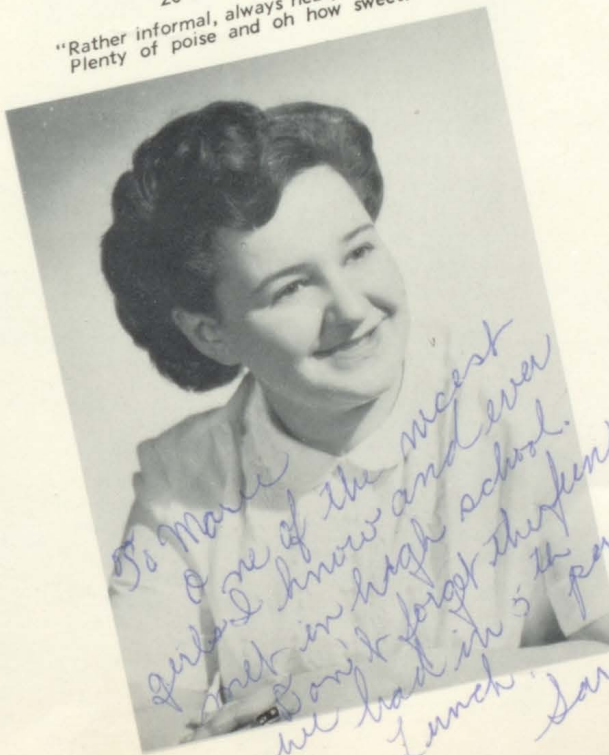 "Rather informal, always
Plenty of poise and oh how sweet
To Marie
one of the nicest
girls I know and ever
met in high school.
Don't forget the fun
we had in 5th
Lunch.